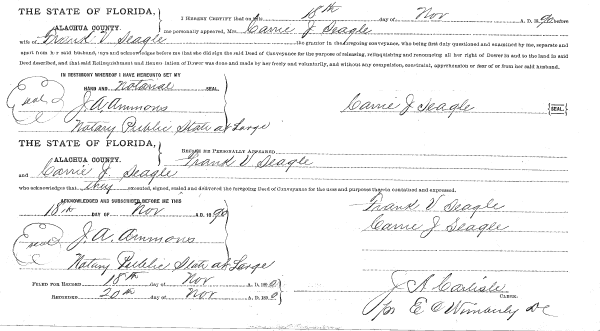 THE STATE OF FLORIDA,
ALACHUA COUNTY.
I HEREBY CERTIFY that on this 18th day of Nov A. D. 1890 before
me personally appeared, Mrs. Carrie J Seagle
wife of Frank V Seagle the grantor in the foregoing conveyance, who being first duly questioned and examined by me, separate and
apart from her said husband, says and acknowledges before me that she did sign the said Deed of Conveyance for the purpose of releasing, relinquishing and renouncing all her right of Dower in and to the land in said
Deed described, and that said Relinquishment and Renunciation of Dower was done and made by her freely and voluntarily, and without any compulsion, constraint, apprehension or fear of or from her said husband.
IN TESTIMONY WHEREOF I HAVE HEREUNTO SET MY
HAND AND Notarial SEAL.
Seal J. A. Ammons
Carrie J Seagle SEAL
Notary Public State at Large
THE STATE OF FLORIDA,
ALACHUA COUNTY.
BEFORE ME PERSONALLY APPEARED
Frank V Seagle
and Carrie J Seagle
who acknowledges that they executed, signed, sealed and delivered the foregoing Deed of Conveyance for the uses and purposes therein contained and expressed.
ACKNOWLEDGED AND SUBSCRIBED BEFORE ME THIS
18th DAY OF Nov A.D. 1890
Frank V Seagle
Carrie J Seagle
Seal J. A. Ammons
Notary Public State at Large
FILED FOR RECORD 18th day of Nov A. D. 1890
RECORDED 20th day of Nov A. D. 1890
J A Carlisle
CLERK.
pr E C Wimberly DC